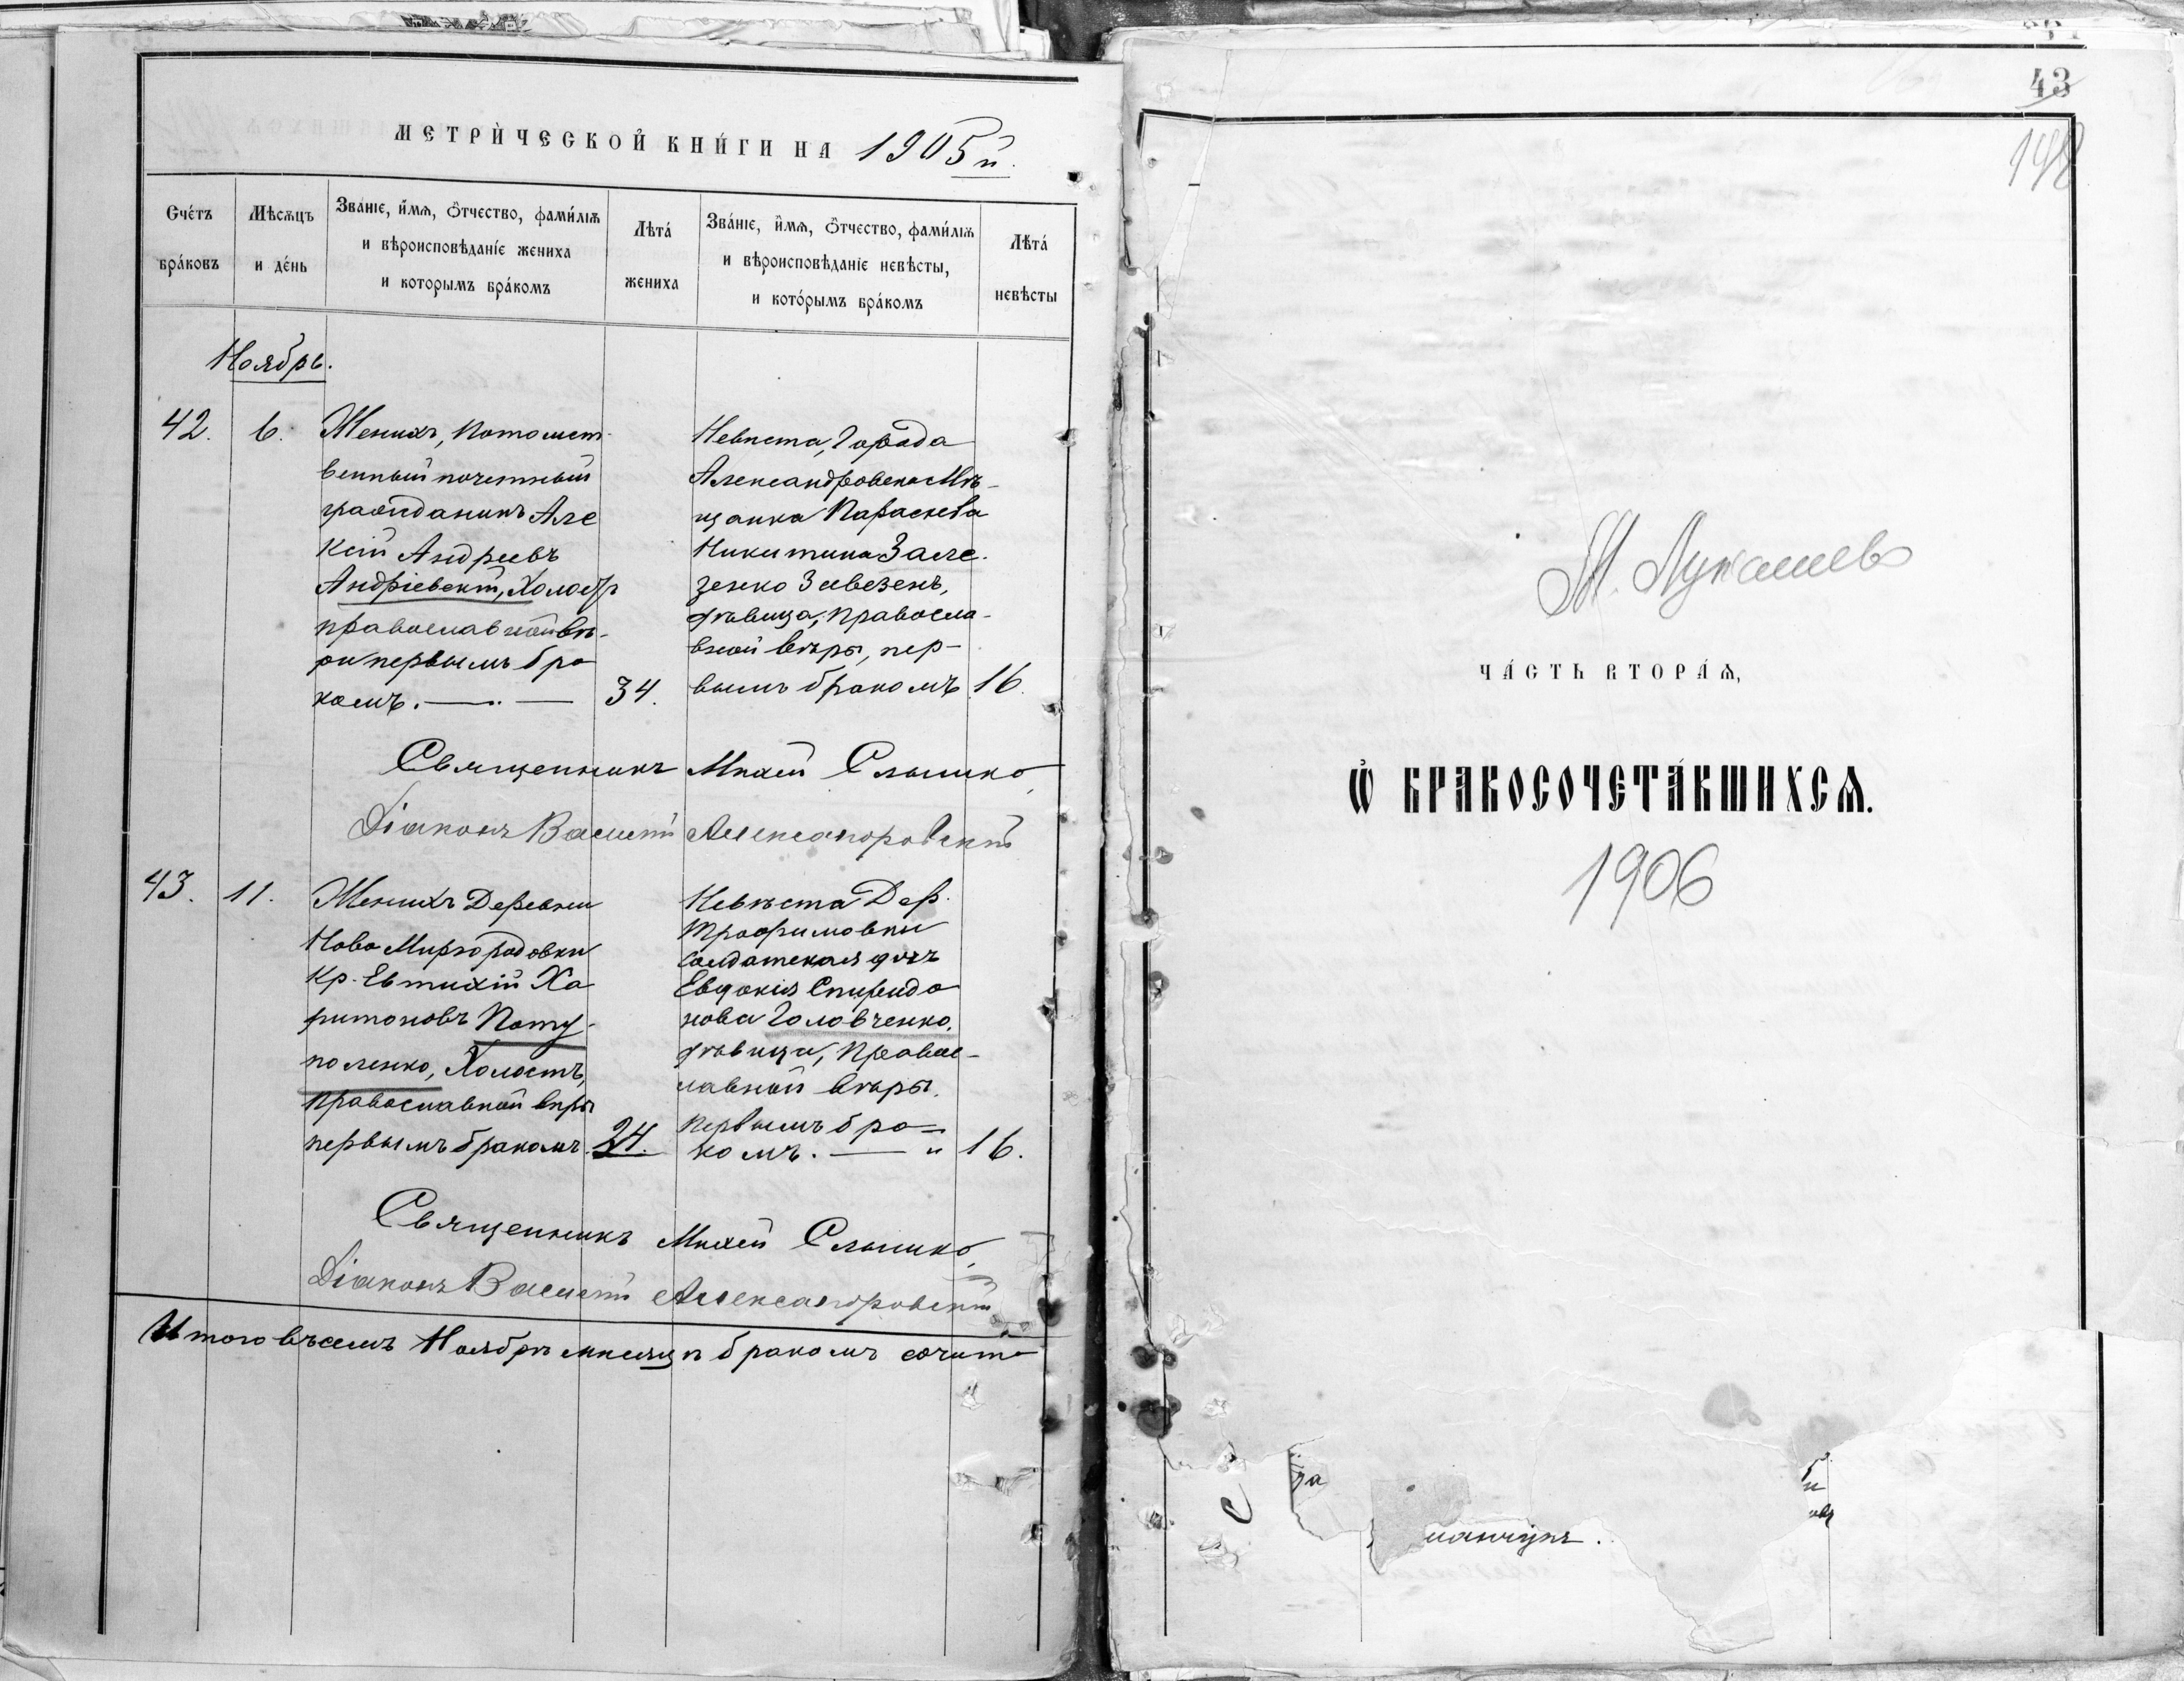 МЕТРИ́ЧЕСКОЙ КНИ́ГИ НА 1905 й.
Сче́тъ бра́ковъ
Мѣсѧцъ и де́нь
Зва́нїе, и́мѧ, ѻ҆́тчество, фами́лїѧ
и вѣроисповѣданїе жениха
и которымъ бра́комъ
Лѣта́ жениха
Зва́нїе, и́мѧ, ѻ҆́тчество, фами́лїѧ
и вѣроисповѣданїе невѣсты,
и кото́рымъ бра́комъ
Лѣта́ невѣсты
Ноябрь.
42. 6.
Женихъ, потомст-
венный почетный
гражданинъ Але
ксій Андреевъ
Андріевскій, Холостъ
православной вѣ-
ры первымъ бра
комъ. — 34.
Невѣста, Города
Александровска Мѣ-
щанка Параскева
Никитина Зале.
зенко
дѣвица, правосла-
вной вѣры, пер-
вымъ бракомъ 16.
Священникъ Михей Слышко,
Діаконъ Василій Александровскій
43. 11.
Женихъ Деревни
Ново Миргородовки
Кр. Евтихій Ха
ритоновъ Поту-
поленко, Холостъ,
православной вѣры
первымъ бракомъ. 24.
Невѣста Дер.
Трофимовки
солдатская дочь
Евдокія Спиридо
нова Головченко,
дѣвица, правос-
лавной вѣры.
первымъ бра=
комъ. — " 16.
Священникъ Михей Слышко,
Діаконъ Василій Александровскій
Итого въ семъ Ноябрѣ мѣсяцѣ бракомъ сочита
43
148
М. Лукашево
ЧА́СТЬ ВТОРА́Ѧ,
Ѡ҆ БРАКОСОЧЕТА́ВШИХСѦ.
1906